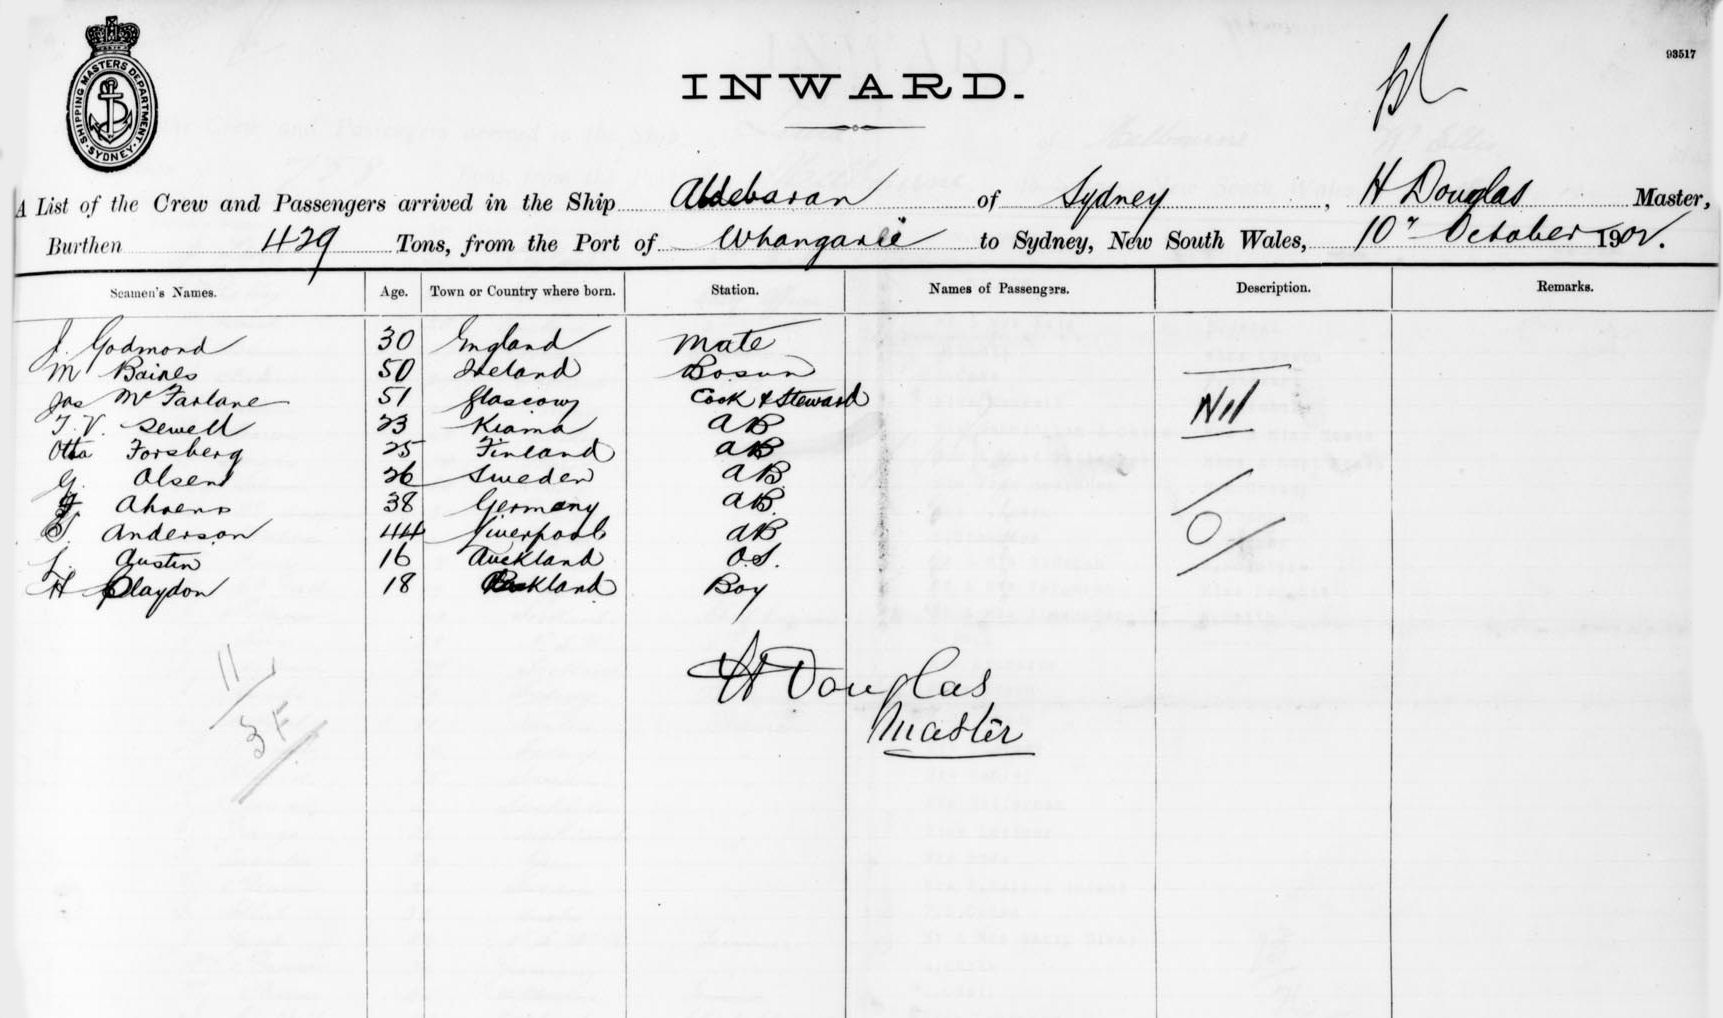 SHIPPING MASTERS DEPARTMENT. SYDNEY.
93517
INWARD.
A List of the Crew and Passengers arrived in the Ship Aldebaran of Sydney, H Douglas Master,
Burthen 429 Tons, from the Port of Whangarie to Sydney, New South Wales, 10th October 1902.
Seamen's Names. Age. Town or Country where born. Station. Names of Passengers. Description. Remarks.
J. Godmond 30 England Mate
M Baines 50 Ireland Bosun
Jas McFarlane 51 Glascow Cook & Steward Nil
T. V. Sewell 23 Kiama AB
Otto Forsberg 25 Finland AB
G. Olsen 26 Sweden AB
Ahrens 38 Germany AB
Anderson 44 Liverpool AB
L. Austin 16 Auckland O.S.
H Claydon 18 Auckland Boy
11
3 F
H Douglas
Master